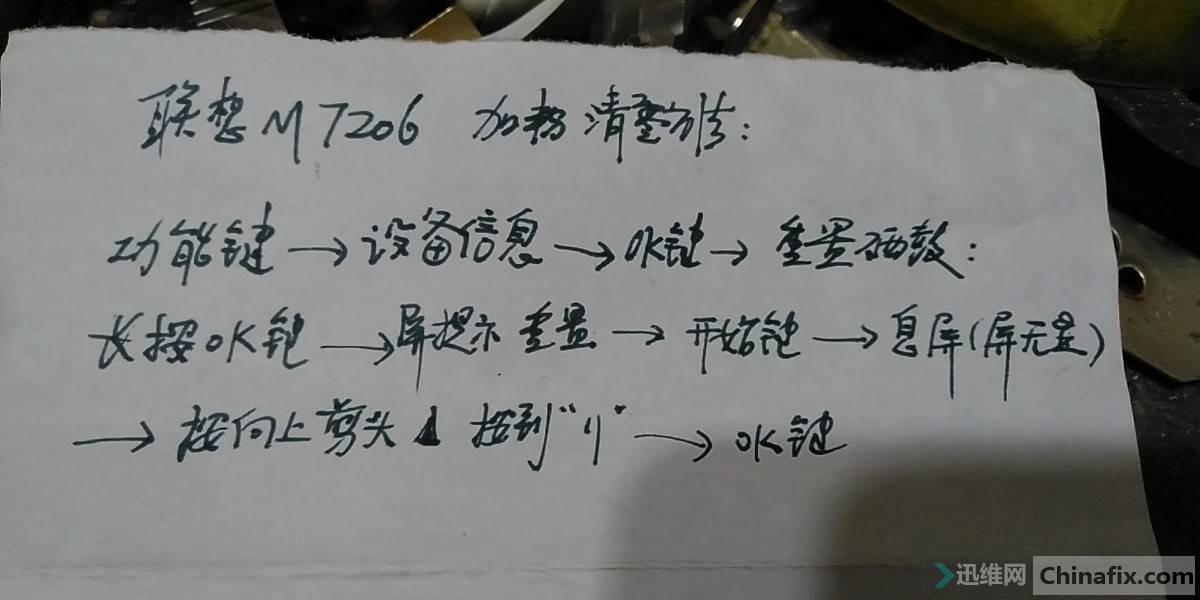 联想M7206 加粉清零方法：
功能键→设备信息→OK键→重置硒鼓：
长按OK键→屏提示重置→开始键→息屏(屏无显)
→按向上剪头 按到"11"→OK键
迅维网 Chinafix.com